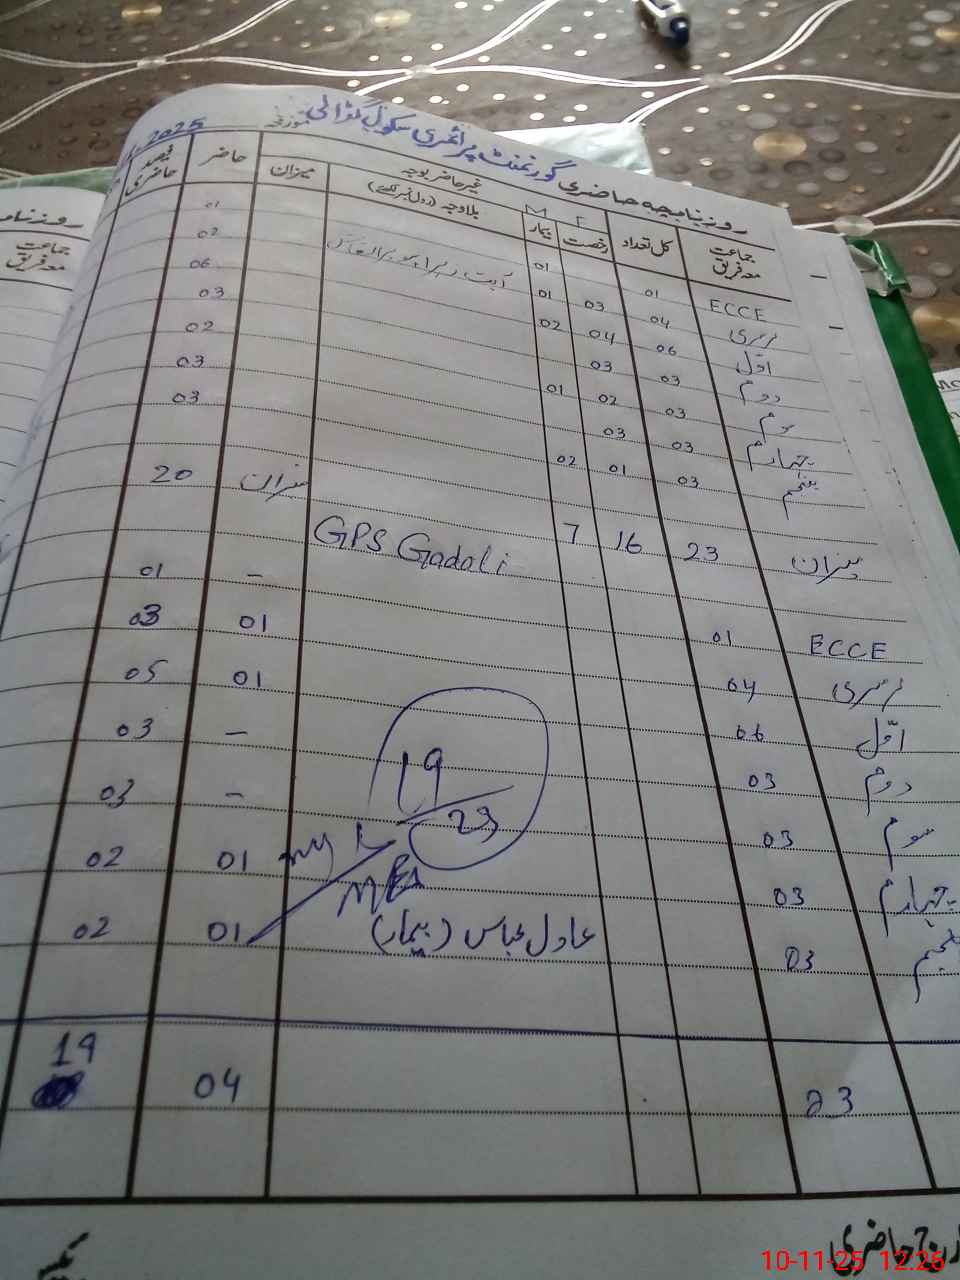 روزنامچہ حاضری گورنمنٹ پرائمری سکول گڈالی مورخہ 2025
جماعت معہ فریق کل تعداد غیر حاضر بوجہ رخصت F بیمار M بلاوجہ (رول نمبر لکھیں) میزان حاضر فیصد حاضری
ECCE 01 01 01
نرسری 04 03 01 02
اوّل 06 04 02 06
دوم 03 03 03
سوم 03 02 01 02
چہارم 03 03 03
پنجم 03 01 02 03
میزان 23 16 7 میزان 20
GPS Gadali
ECCE 01 – 01
نرسری 04 01 03
اوّل 06 01 05
دوم 03 – 03
سوم 03 – 03
چہارم 03 01 02
پنجم 03 عادل عباس (بیمار) 01 02
19
23
23 04 19
حاضری
روزنامچہ
جماعت معہ فریق
10-11-25 12:26